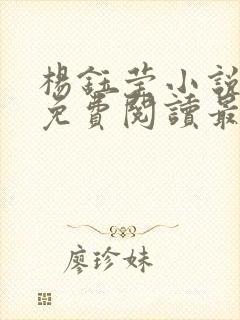 楊鈺莹小說
免費閱讀最
廖珍妹